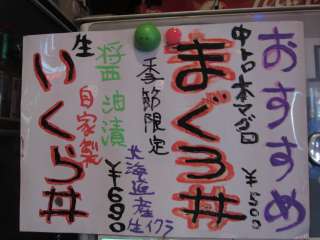 おすすめ
中トロ本マグロ
まぐろ丼
季節限定
北海道産
生イクラ
生
醤油漬
自家製
いくら丼